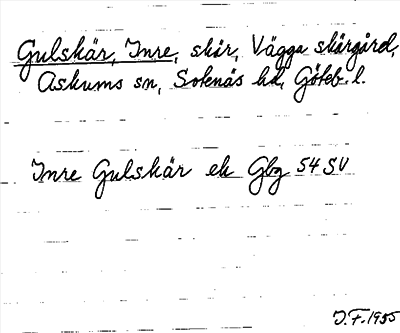 Gulskär, Inre, skär, Vägga skärgård,
Askums sn, Sotenäs hd, Göteb. l.
Inre Gulskär ek Gbg 54 SV
I.F. 1955